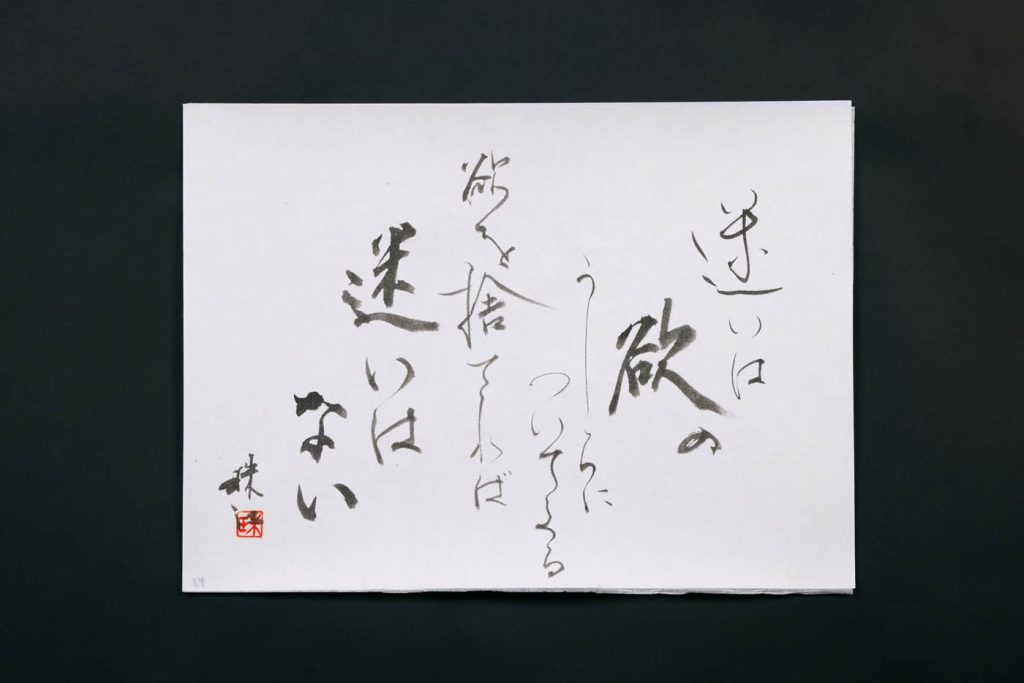 迷いは
欲の
うしろに
ついてくる
欲を捨てれば
迷いは
ない
珠